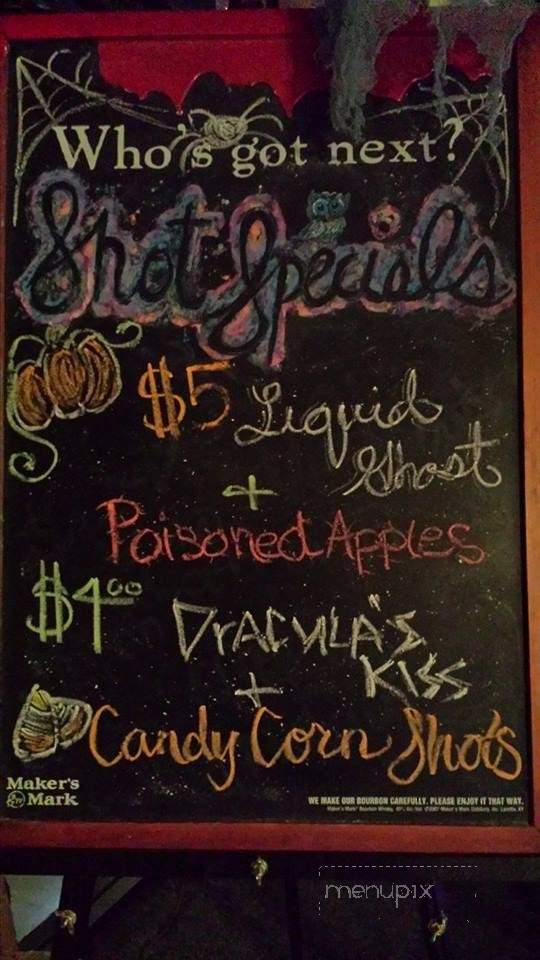 Who's got next?
Shot Specials
$5 Liquid
Ghost
+
Poisoned Apples
$4.00 DRACULA'S
KISS
+
Candy Corn Shots
Maker's
Mark
WE MAKE OUR BOURBON CAREFULLY. PLEASE ENJOY IT THAT WAY.
menupix